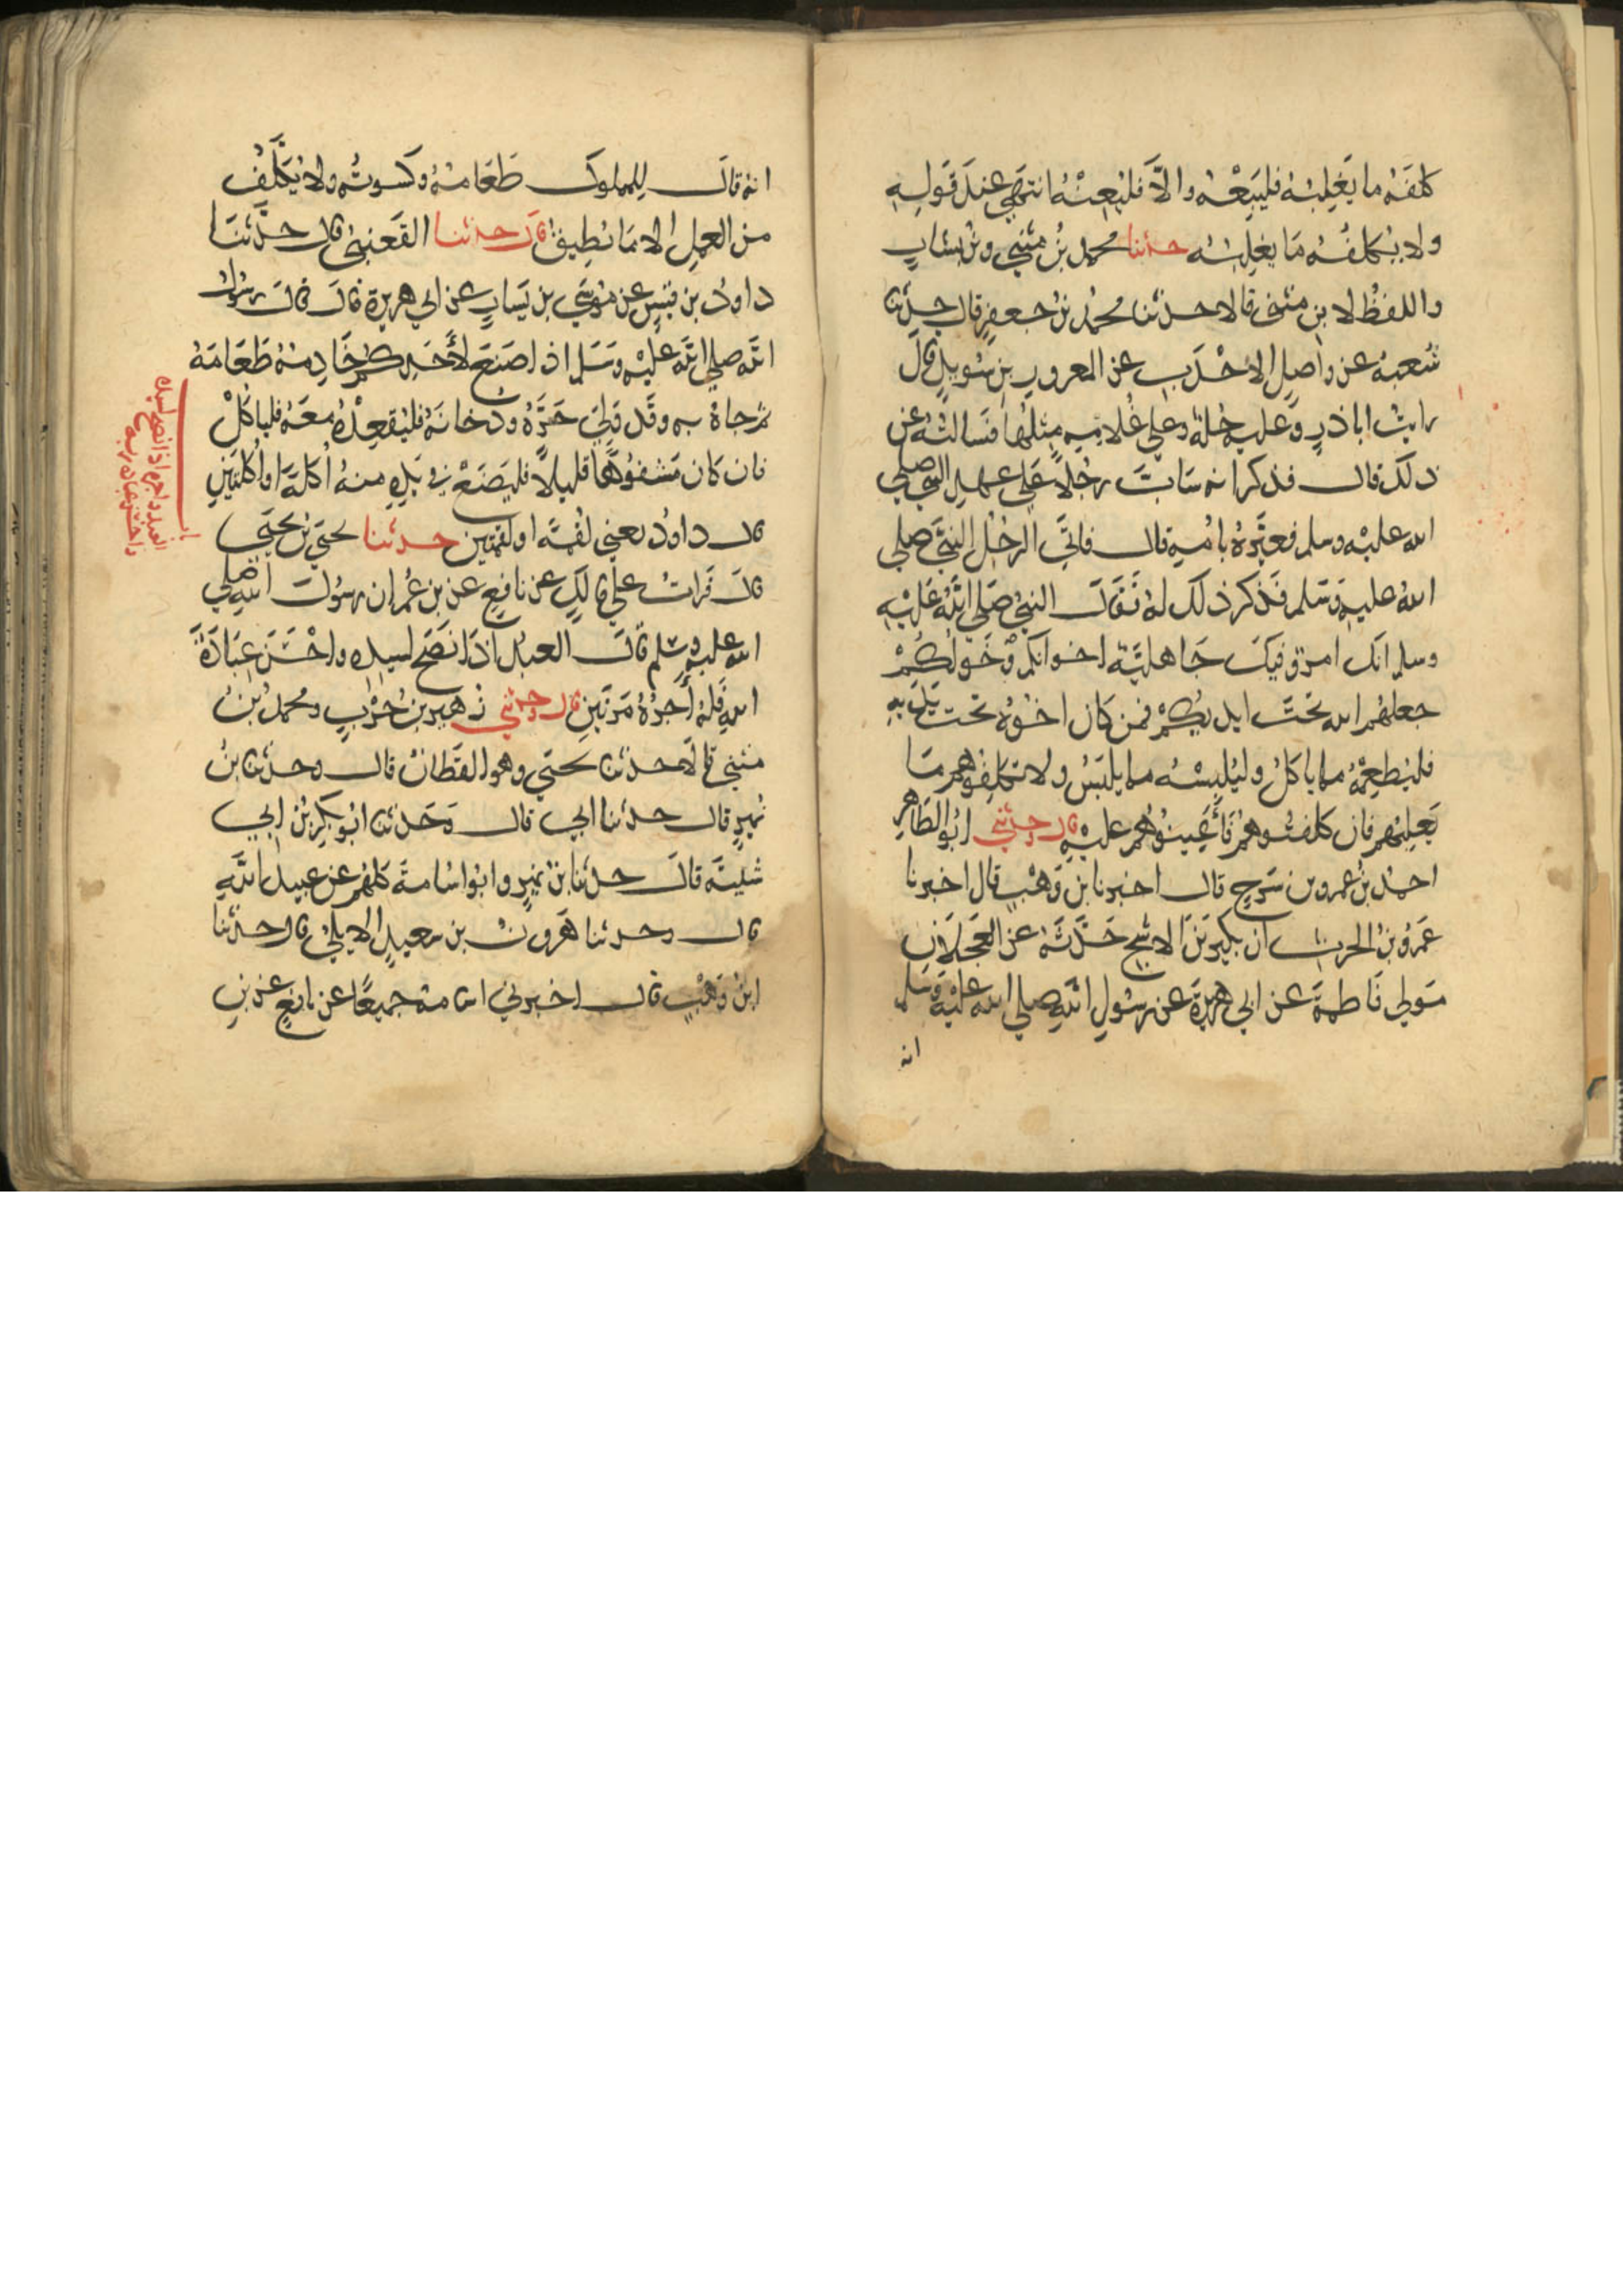 كلفه ما يغلبه فليبعه والا فليعنه انتهى عند قوله
ولا يكلفه ما يغلبه حدثنا محمد بن مثني وبن بشار
واللفظ لابن مثنى قالا حدثنا محمد بن جعفر قال حدثنا
شعبة عن واصل الاحدب عن المعرور بن سويد قال
رايت اباذر وعليه حلة وعلي غلامه مثلها فسالته عن
ذلك قال فذكر انه ساب رجلا علي عهد النبي صلي
الله عليه وسلم فعيره بامه قال فاتي الرجل النبي صلي
الله عليه وسلم فذكر ذلك له فقال النبي صلي الله عليه
وسلم انك امرؤ فيك جاهلية اخوانكم وخولكم
جعلهم الله تحت ايديكم فمن كان اخوه تحت يديه
فليطعمه مما ياكل وليلبسه مما يلبس ولا تكلفوهم ما
يغلبهم فان كلفتموهم فاعينوهم عليه قال وحدثني ابو الطاهر
احمد بن عمرو بن سرح قال اخبرنا بن وهب قال اخبرنا
عمرو بن الحرث ان بكير بن الاشج حدثه عن العجلان
مولي فاطمة عن ابي هريرة عن رسول الله صلي الله عليه وسلم
انه
انه قال للمملوك طعامه وكسوته ولا يكلف
من العمل الا ما يطيق قال حدثنا القعنبي قال حدثنا
داود بن قيس عن موسي بن يسار عن ابي هريرة قال قال رسول
الله صلي الله عليه وسلم اذا صنع لأحدكم خادمه طعامه
ثم جاه به وقد ولي حره ودخانه فليقعده معه فلياكل
فان كان مشفوها قليلا فليضع في يده منه اكلة او اكلتين
قال داود يعني لقمة او لقمتين حدثنا يحيي بن يحيي
قال قرات علي مالك عن نافع عن بن عمر ان رسول الله صلي
الله عليه وسلم قال العبد اذا نصح لسيده واحسن عبادة
الله فله أجره مرتين قال وحدثني زهير بن حرب ومحمد بن
مثني قالا حدثنا يحيي وهو القطان قال وحدثنا بن
نمير قال حدثنا ابي قال وحدثنا ابو بكر بن ابي
شيبة قال حدثنا بن نمير وابو اسامة كلهم عن عبيد الله
قال وحدثنا هرون بن سعيد الايلي قال حدثنا
ابن وهب قال اخبرني اسامة جميعا عن نافع عن بن
العبد واجره اذا نصح لسيده
واحسن عبادة ربه